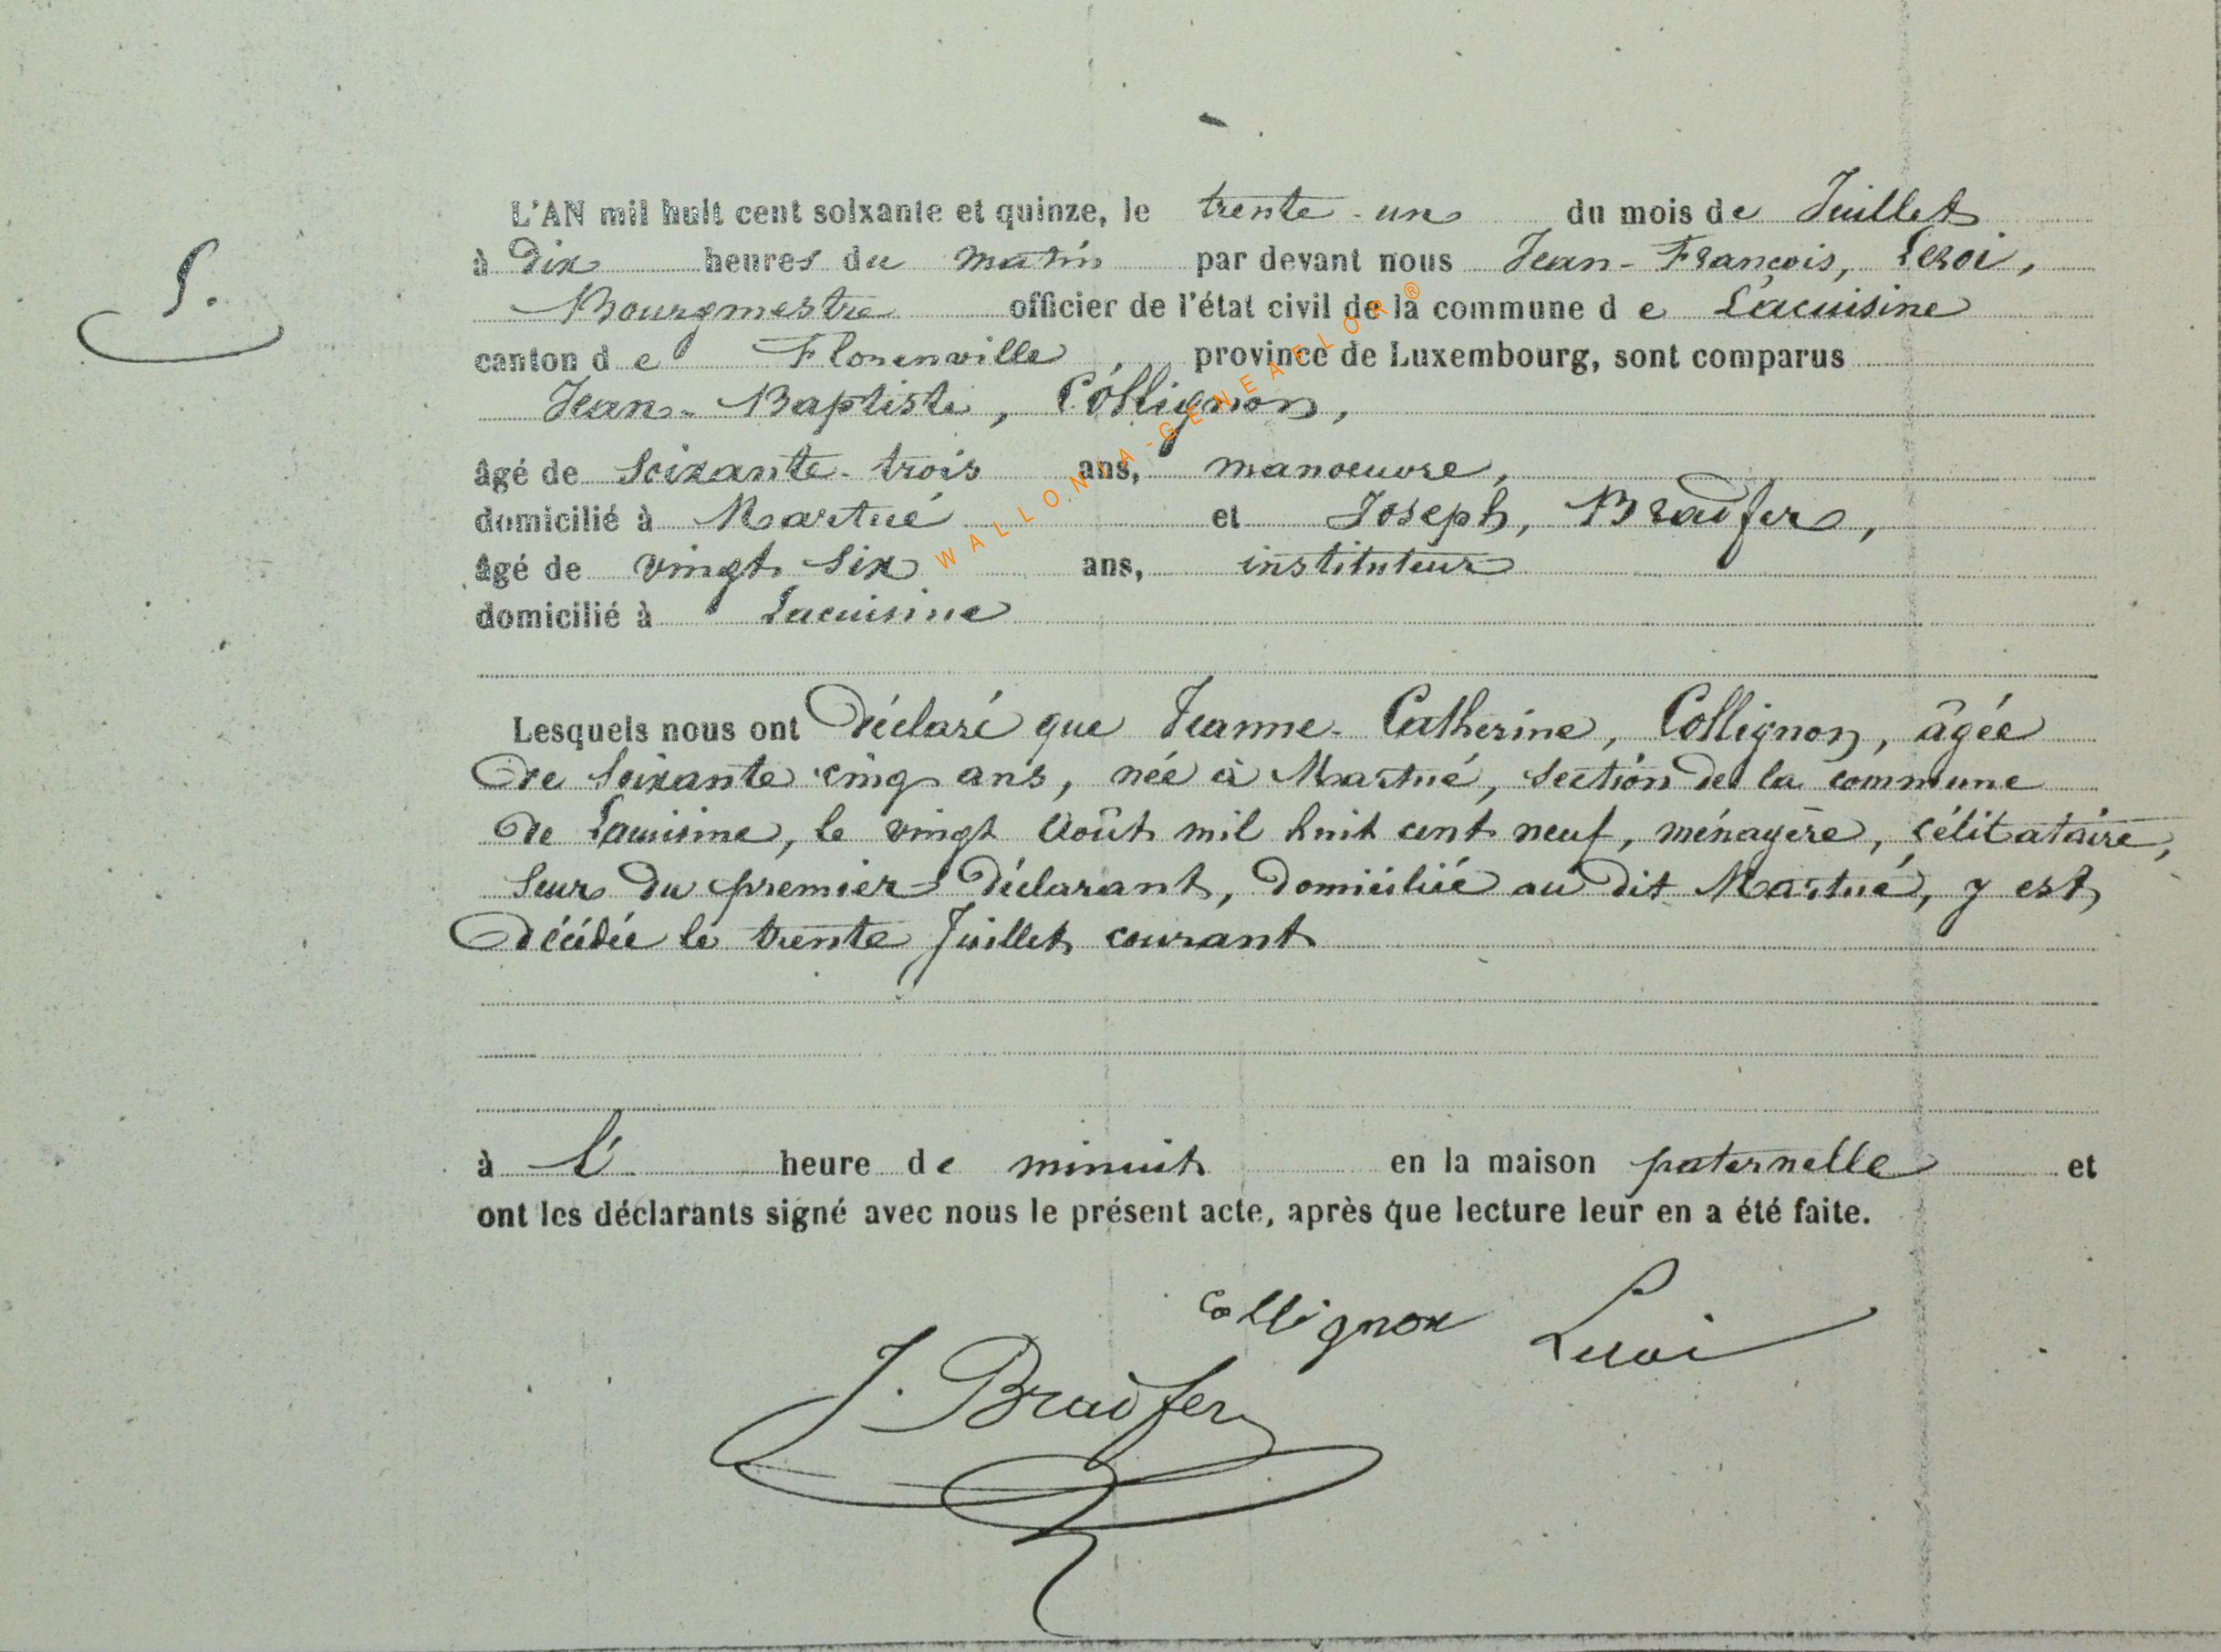 L'AN mil huit cent soixante et quinze, le trente-un du mois de Juillet
à dix heures du matin par devant nous Jean-François, Leroi,
Bourgmestre officier de l'état civil de la commune d e Lacuisine
canton d e Florenville, province de Luxembourg, sont comparus
Jean-Baptiste, Collignon,
âgé de soixante-trois ans, manoeuvre,
domicilié à Martué et Joseph, Bradfer,
âgé de vingt six ans, instituteur
domicilié à Lacuisine
5.
Lesquels nous ont déclaré que Jeanne-Catherine, Collignon, âgée
de soixante cinq ans, née à Martué, section de la commune
de Lacuisine, le vingt Août mil huit cent neuf, ménagère, célibataire,
seur du premier déclarant, domiciliée au dit Martué, y est
décédée le trente Juillet courant
à l' heure de minuit en la maison paternelle et
ont les déclarants signé avec nous le présent acte, après que lecture leur en a été faite.
collignon Leroi
J. Bradfer
WALLONIA-GENEAFLOR®